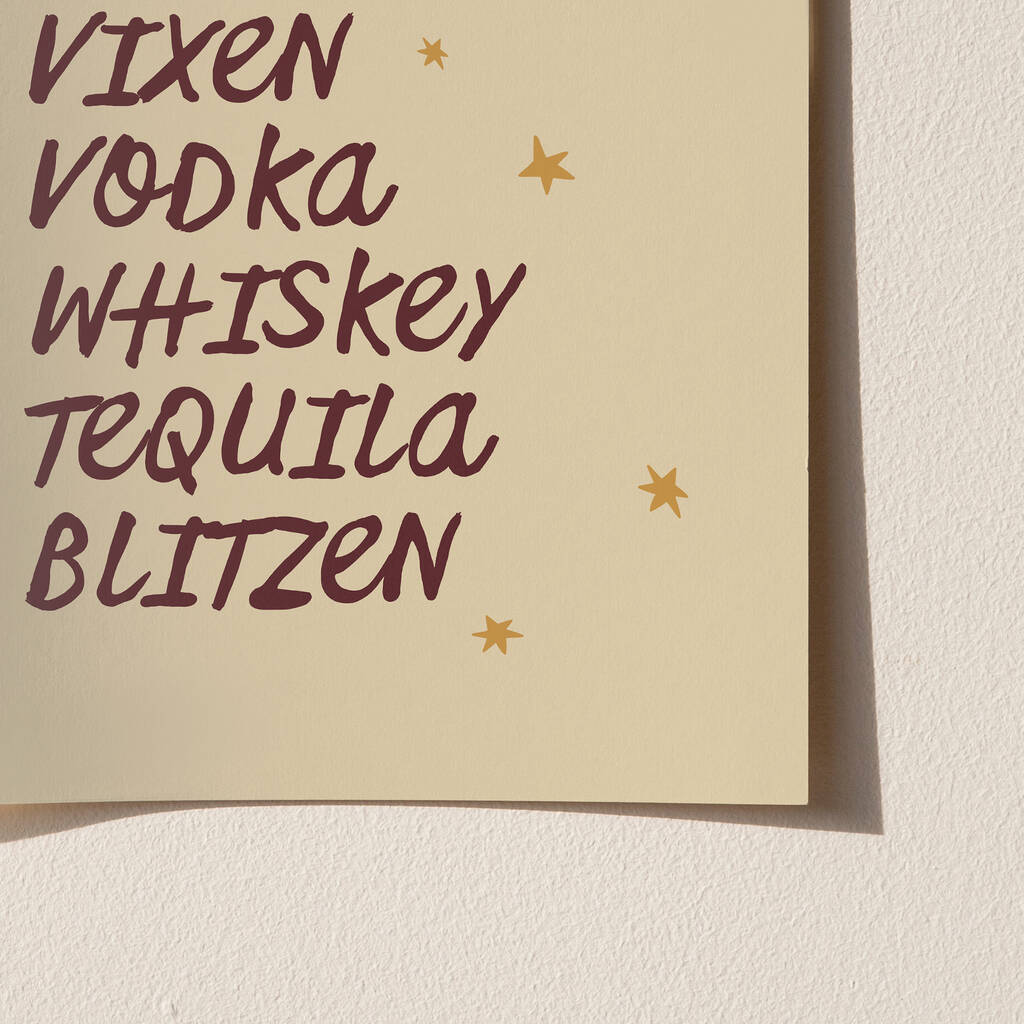 VIXEN
VODKA
WHISKEY
TEQUILA
BLITZEN